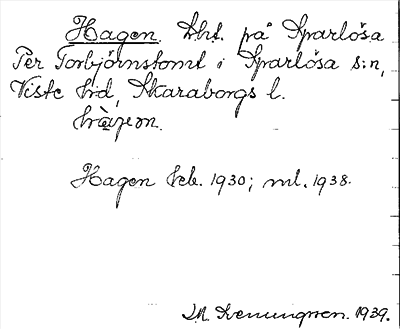 Hagen. Lht. på Sparlösa
Per Torbjörnstomt i Sparlösa s:n,
Viste hd, Skaraborgs l.
Hagen Jeb. 1930; ml. 1938.
1939.